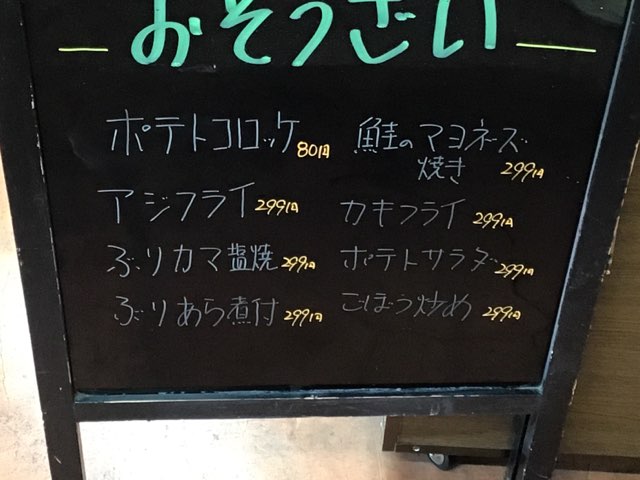 おそうざい
ポテトコロッケ 80円
アジフライ 299円
ぶりカマ塩焼 299円
ぶりあら煮付 299円
鮭のマヨネーズ
焼き 299円
カキフライ 299円
ポテトサラダ 299円
ごぼう炒め 299円